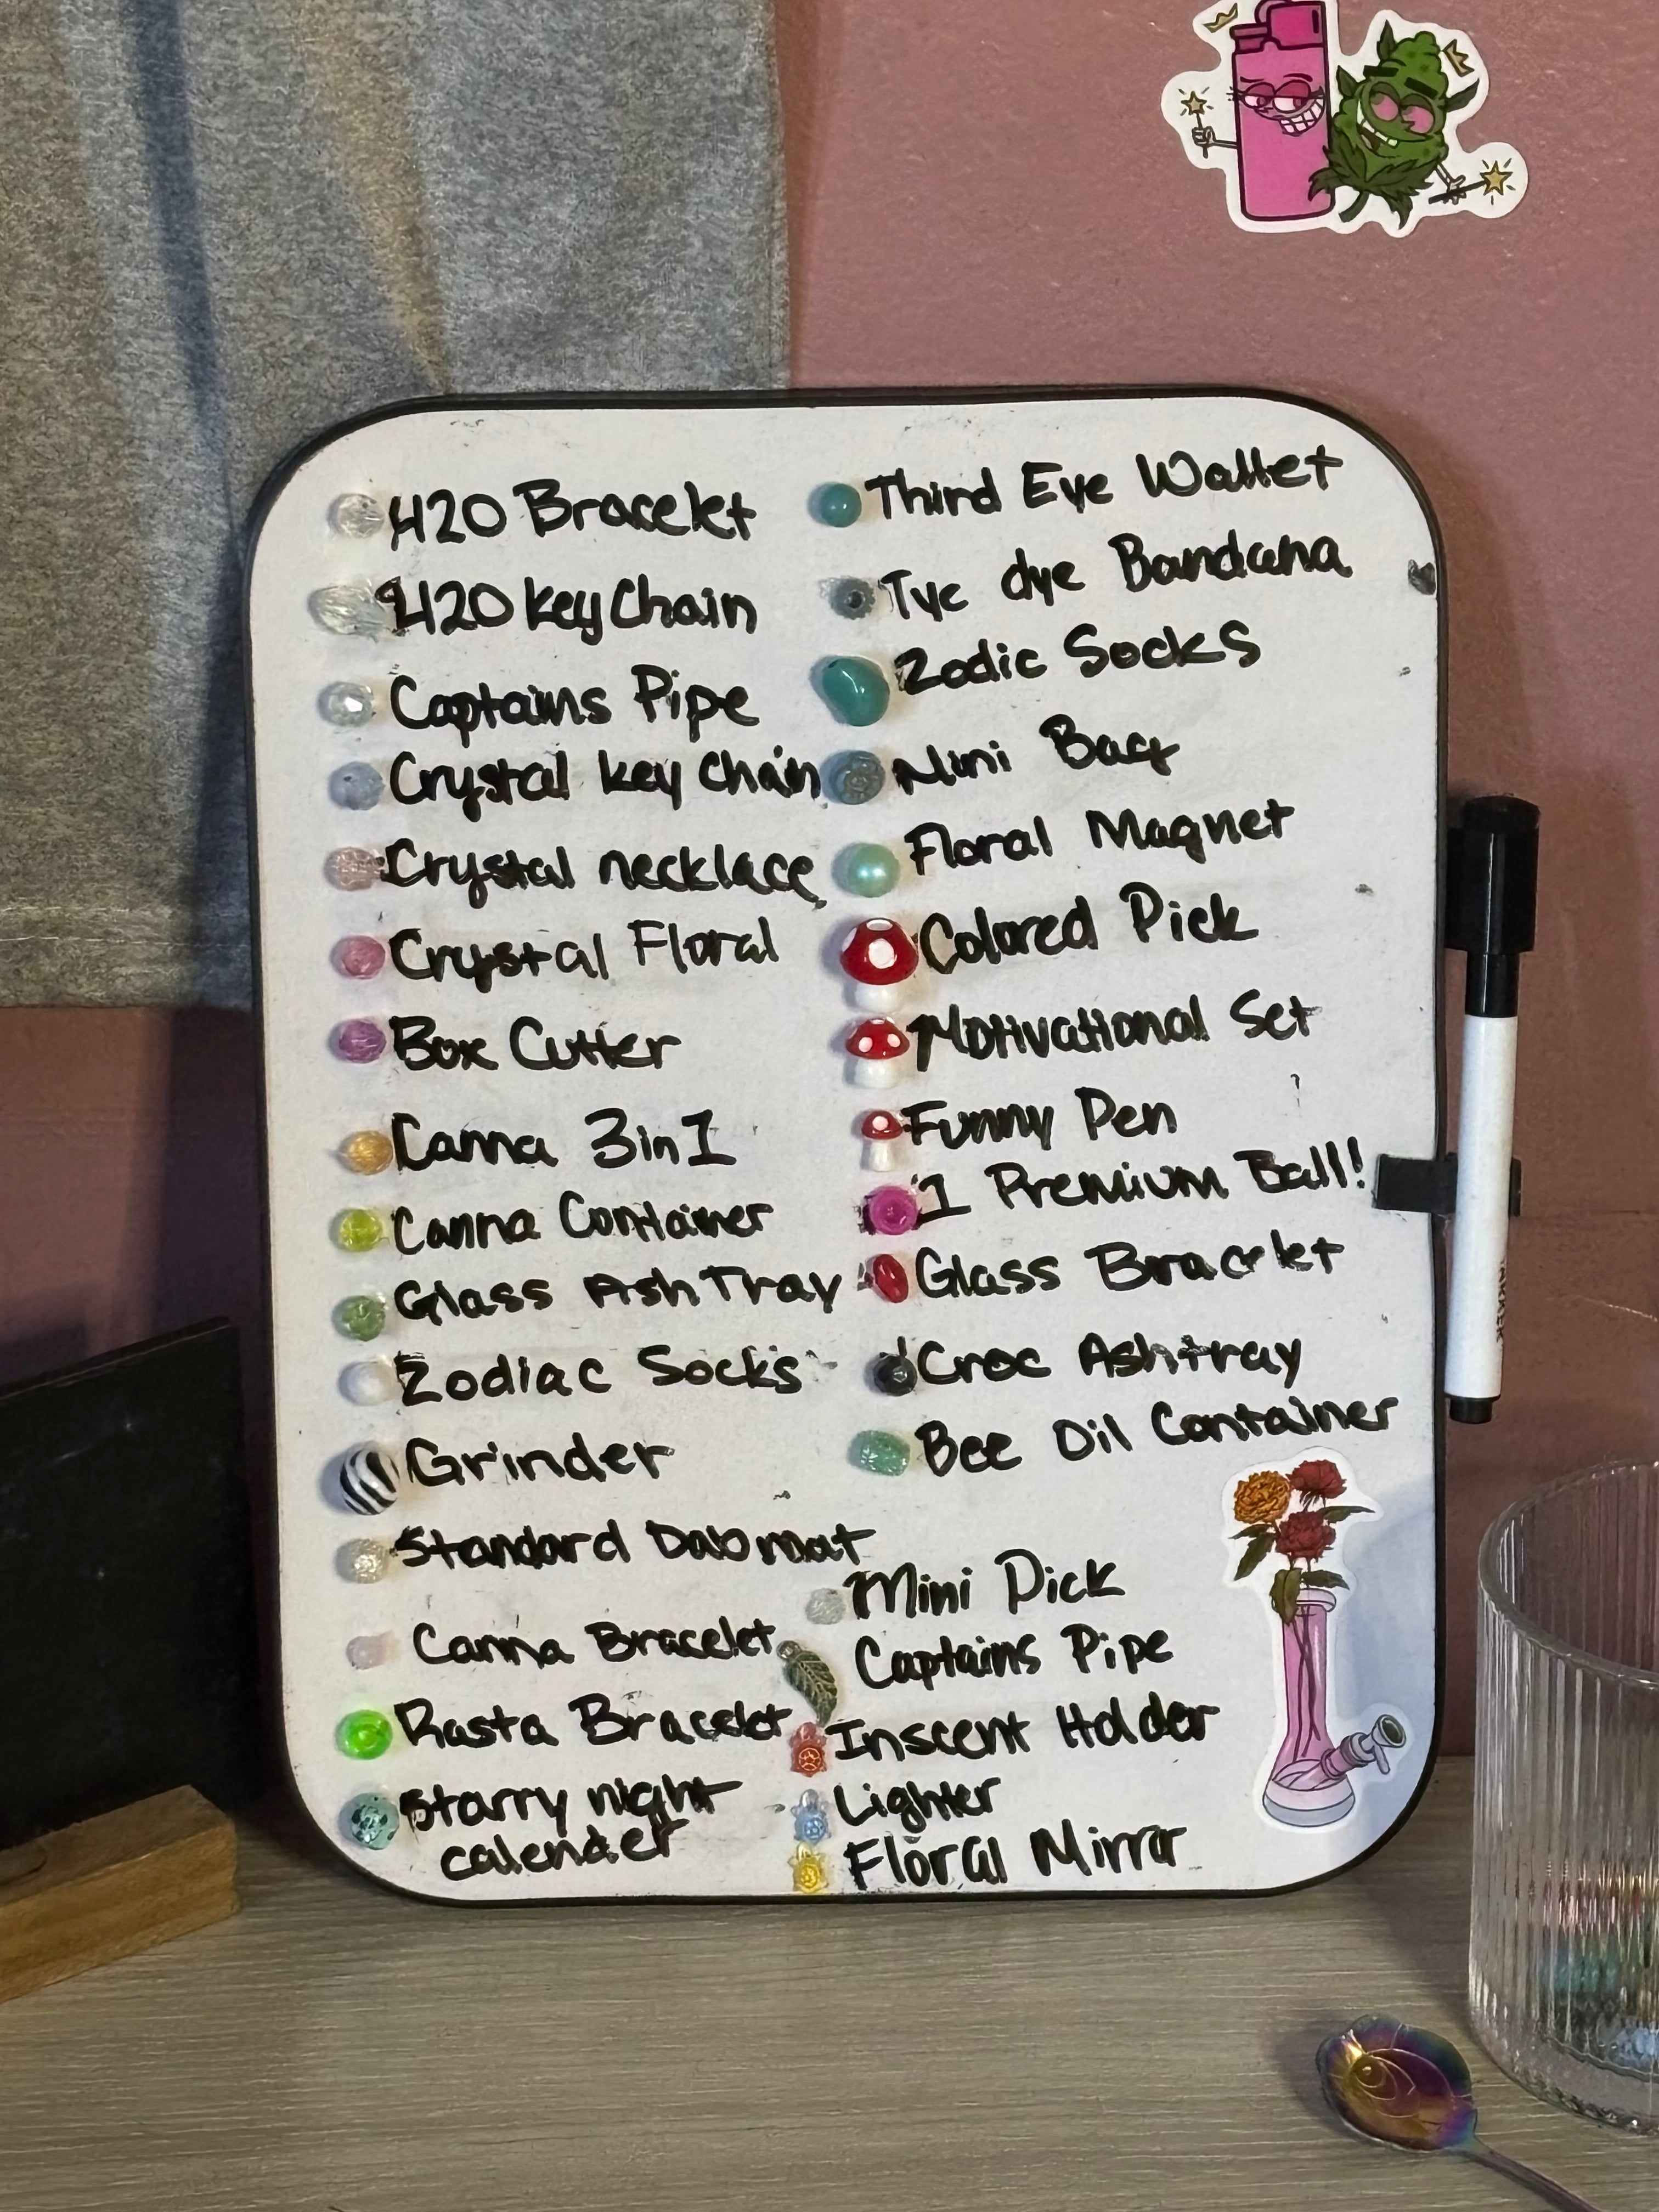 420 Bracelet
420 key Chain
Captains Pipe
Crystal key Chain
Crystal necklace
Crystal Floral
Box Cutter
Canna 3in1
Canna Container
Glass Ash Tray
Zodiac Socks
Grinder
Standard Dab mat
Canna Bracelet
Rasta Bracelet
Starry night
calender
Third Eye Wallet
Tye dye Bandana
Zodic Socks
Mini Bag
Floral Magnet
Colored Pick
Motivational Set
Funny Pen
1 Premium Ball!
Glass Bracelet
Croc Ashtray
Bee Oil Container
Mini Pick
Captains Pipe
Inscent Holder
Lighter
Floral Mirror